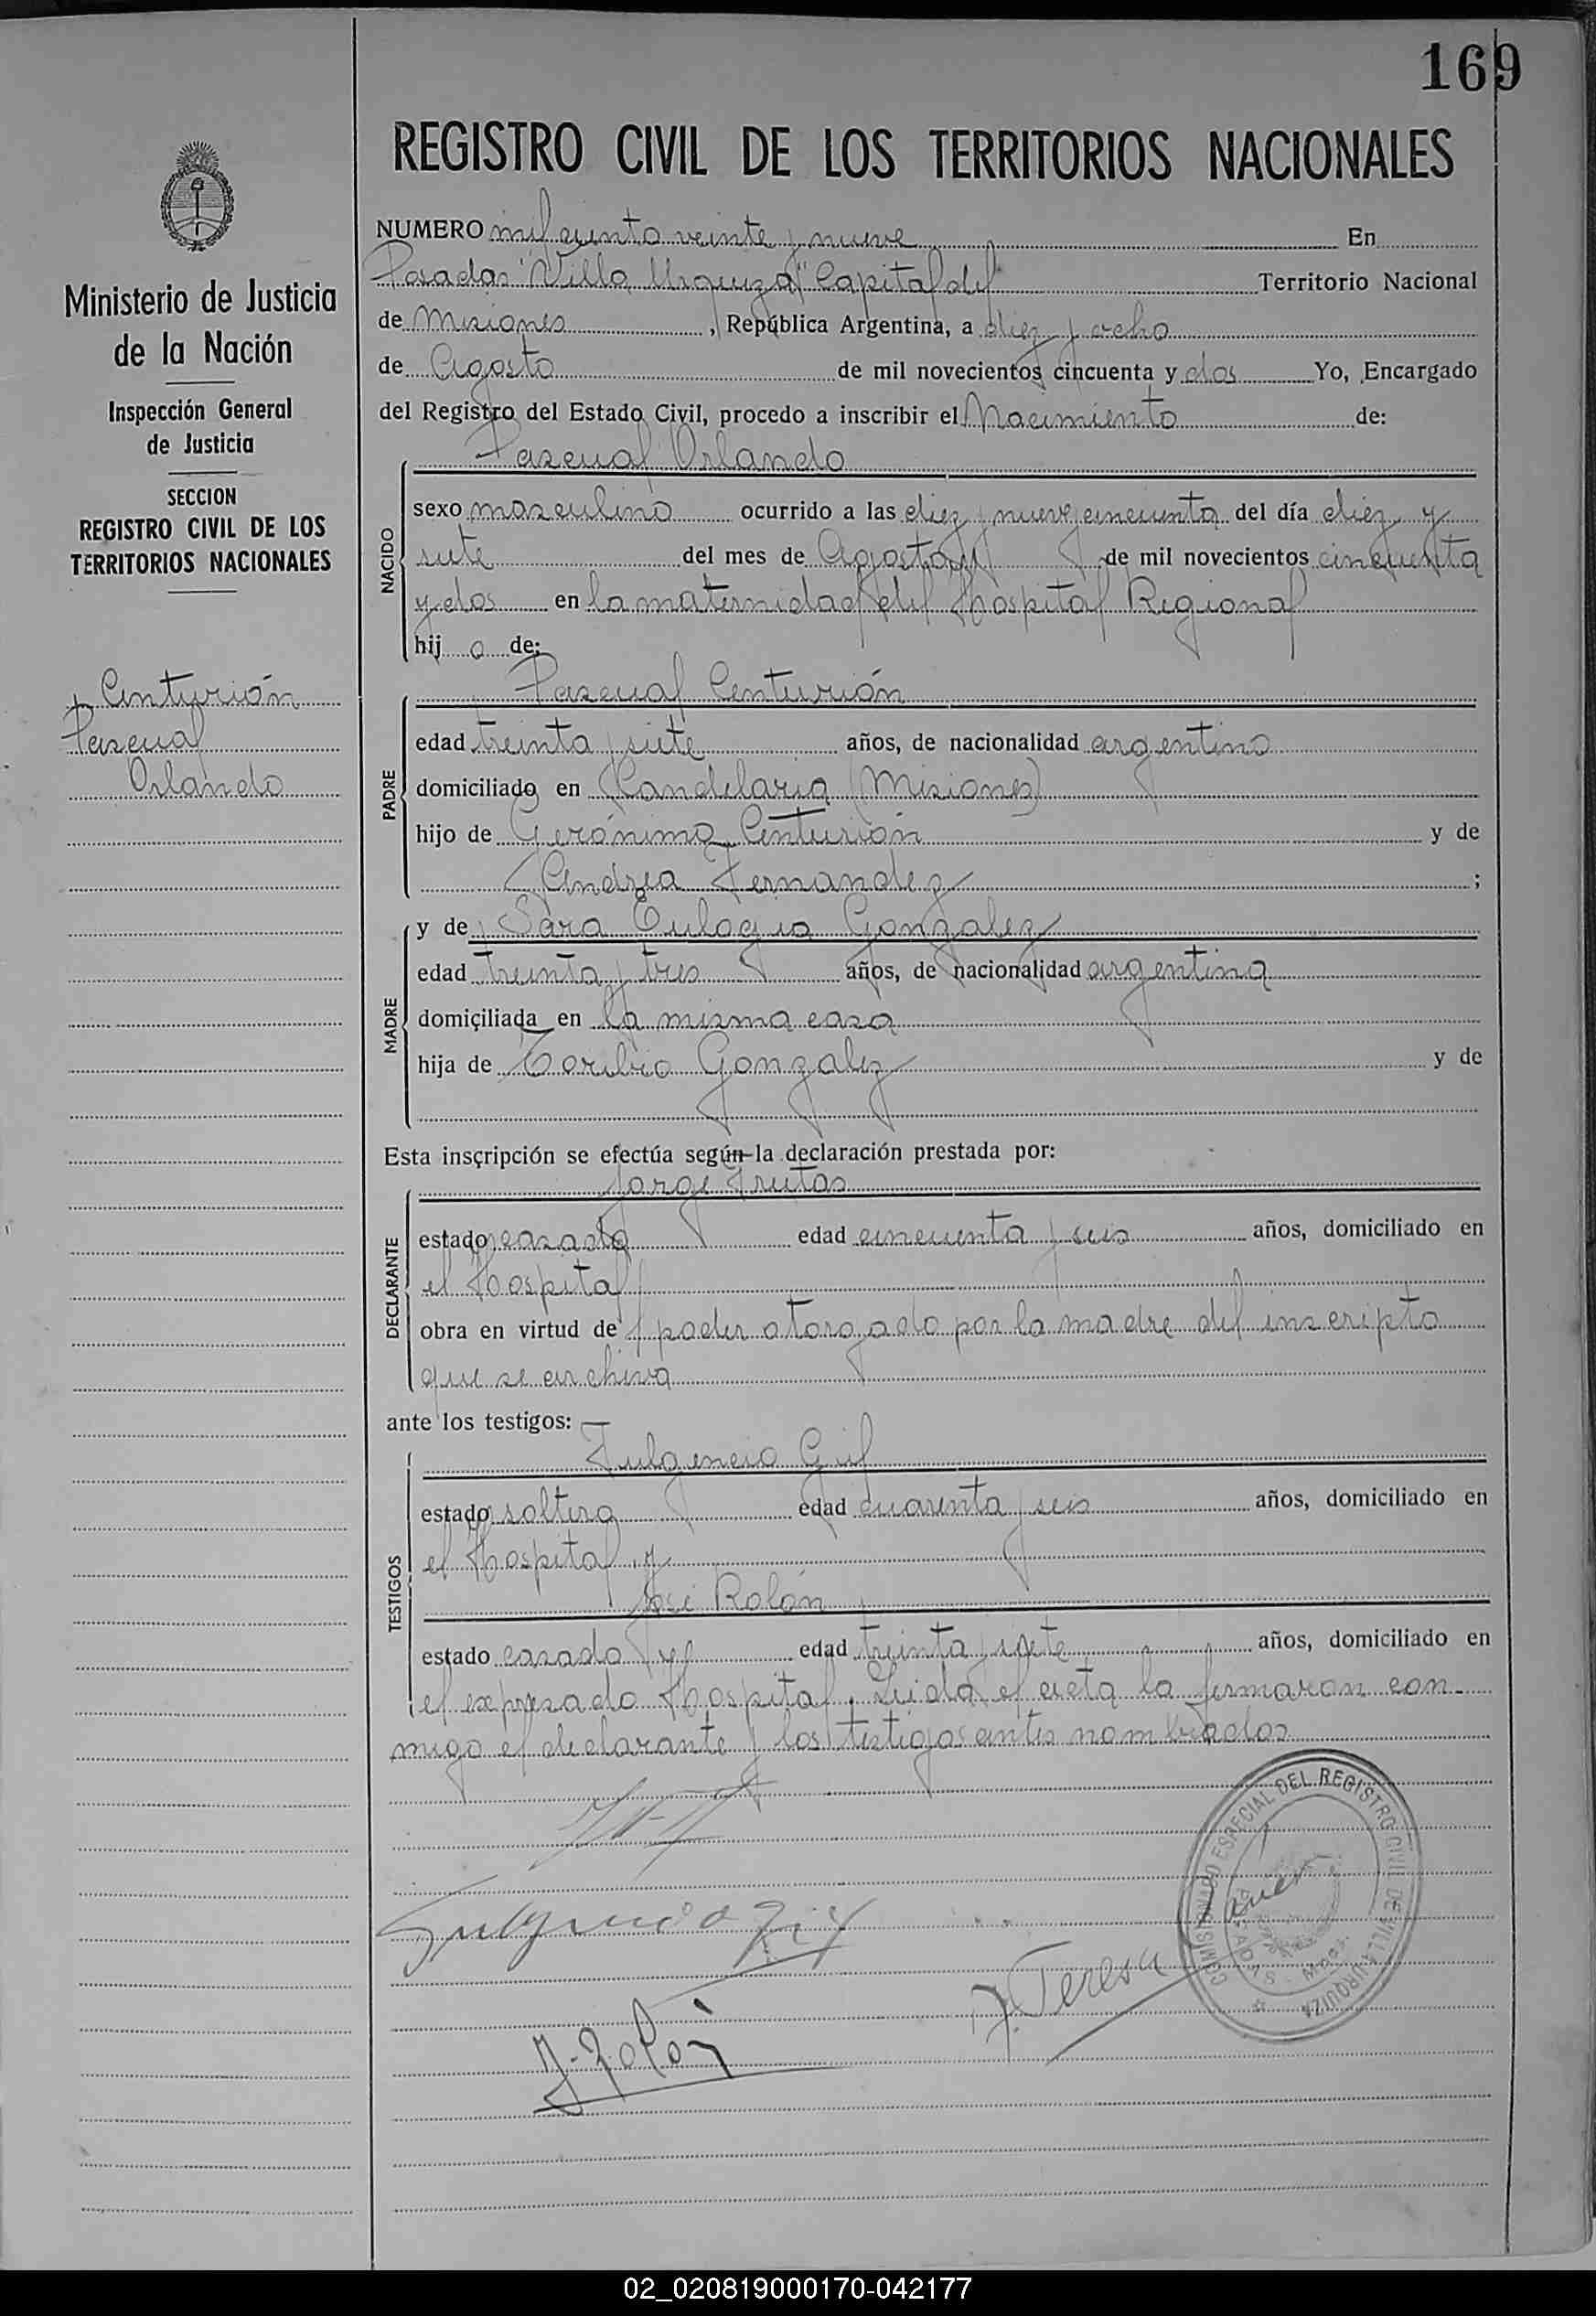 169
REGISTRO CIVIL DE LOS TERRITORIOS NACIONALES
Ministerio de Justicia
de la Nación
Inspección General
de Justicia
SECCION
REGISTRO CIVIL DE LOS
TERRITORIOS NACIONALES
Centurión
Pascual
Orlando
NUMERO mil ciento veinte y nueve En
Posadas "Villa Urquiza" Capital del Territorio Nacional
de Misiones, República Argentina, a diez y ocho
de Agosto de mil novecientos cincuenta y dos Yo, Encargado
del Registro del Estado Civil, procedo a inscribir el Nacimiento de:
Pascual Orlando
NACIDO
sexo masculino ocurrido a las diez y nueve cincuenta del día diez y
siete del mes de Agosto de mil novecientos cincuenta
y dos en la maternidad del Hospital Regional
hij o de:
Pascual Centurión
PADRE
edad treinta y siete años, de nacionalidad argentino
domiciliado en Candelaria (Misiones)
hijo de Gerónimo Centurión y de
Andrea Fernandez ;
MADRE
y de Sara Eulogia Gonzalez
edad treinta y tres años, de nacionalidad argentina
domiciliada en la misma casa
hija de Toribio Gonzalez y de
Esta inscripción se efectúa según la declaración prestada por:
Jorge Frutos
DECLARANTE
estado casado edad cincuenta y seis años, domiciliado en
el Hospital
obra en virtud del poder otorgado por la madre del inscripto
que se archiva
ante los testigos:
Fulgencio Gil
TESTIGOS
estado soltero edad cuarenta y seis años, domiciliado en
el Hospital y
José Rolón
estado casado edad treinta y siete años, domiciliado en
el expresado Hospital. Leida el acta la firmaron con-
migo el declarante y los testigos antes nombrados
Fulgencio Gil
J. Teresa
J. Rolón
COMISIONADO ESPECIAL DEL REGISTRO CIVIL DE VILLA URQUIZA
POSADAS - Mnes.
02_020819000170-042177